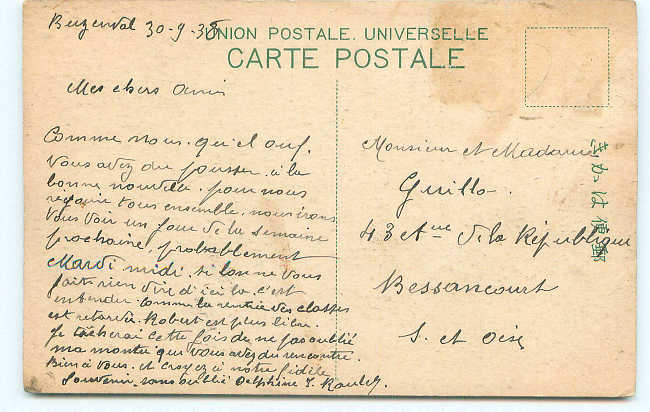 Buzenval 30-9-38
UNION POSTALE UNIVERSELLE
CARTE POSTALE
Mes chers Amis
Comme nous. quel ouf.
vous avez du pousser. à la
bonne nouvelle. pour nous
réjouir tous ensemble, nous irons
vous voir un jour de la semaine
prochaine. probablement
Mardi midi. si lon ne vous
faits rien dire d'ici la. c'est
entendu. comme la rentrée des classes
est retardée. Robert est plus libre.
Je tâcherai cette fois de ne pas oublié
ma montre que vous avez du rencontré.
Bien à vous. et croyez à notre fidèle
Souvenir sans oublié Delphine
Monsieur et Madame
Guillo.
43 Aue de la République
Bessancourt
S. et Oise
きかは便郵